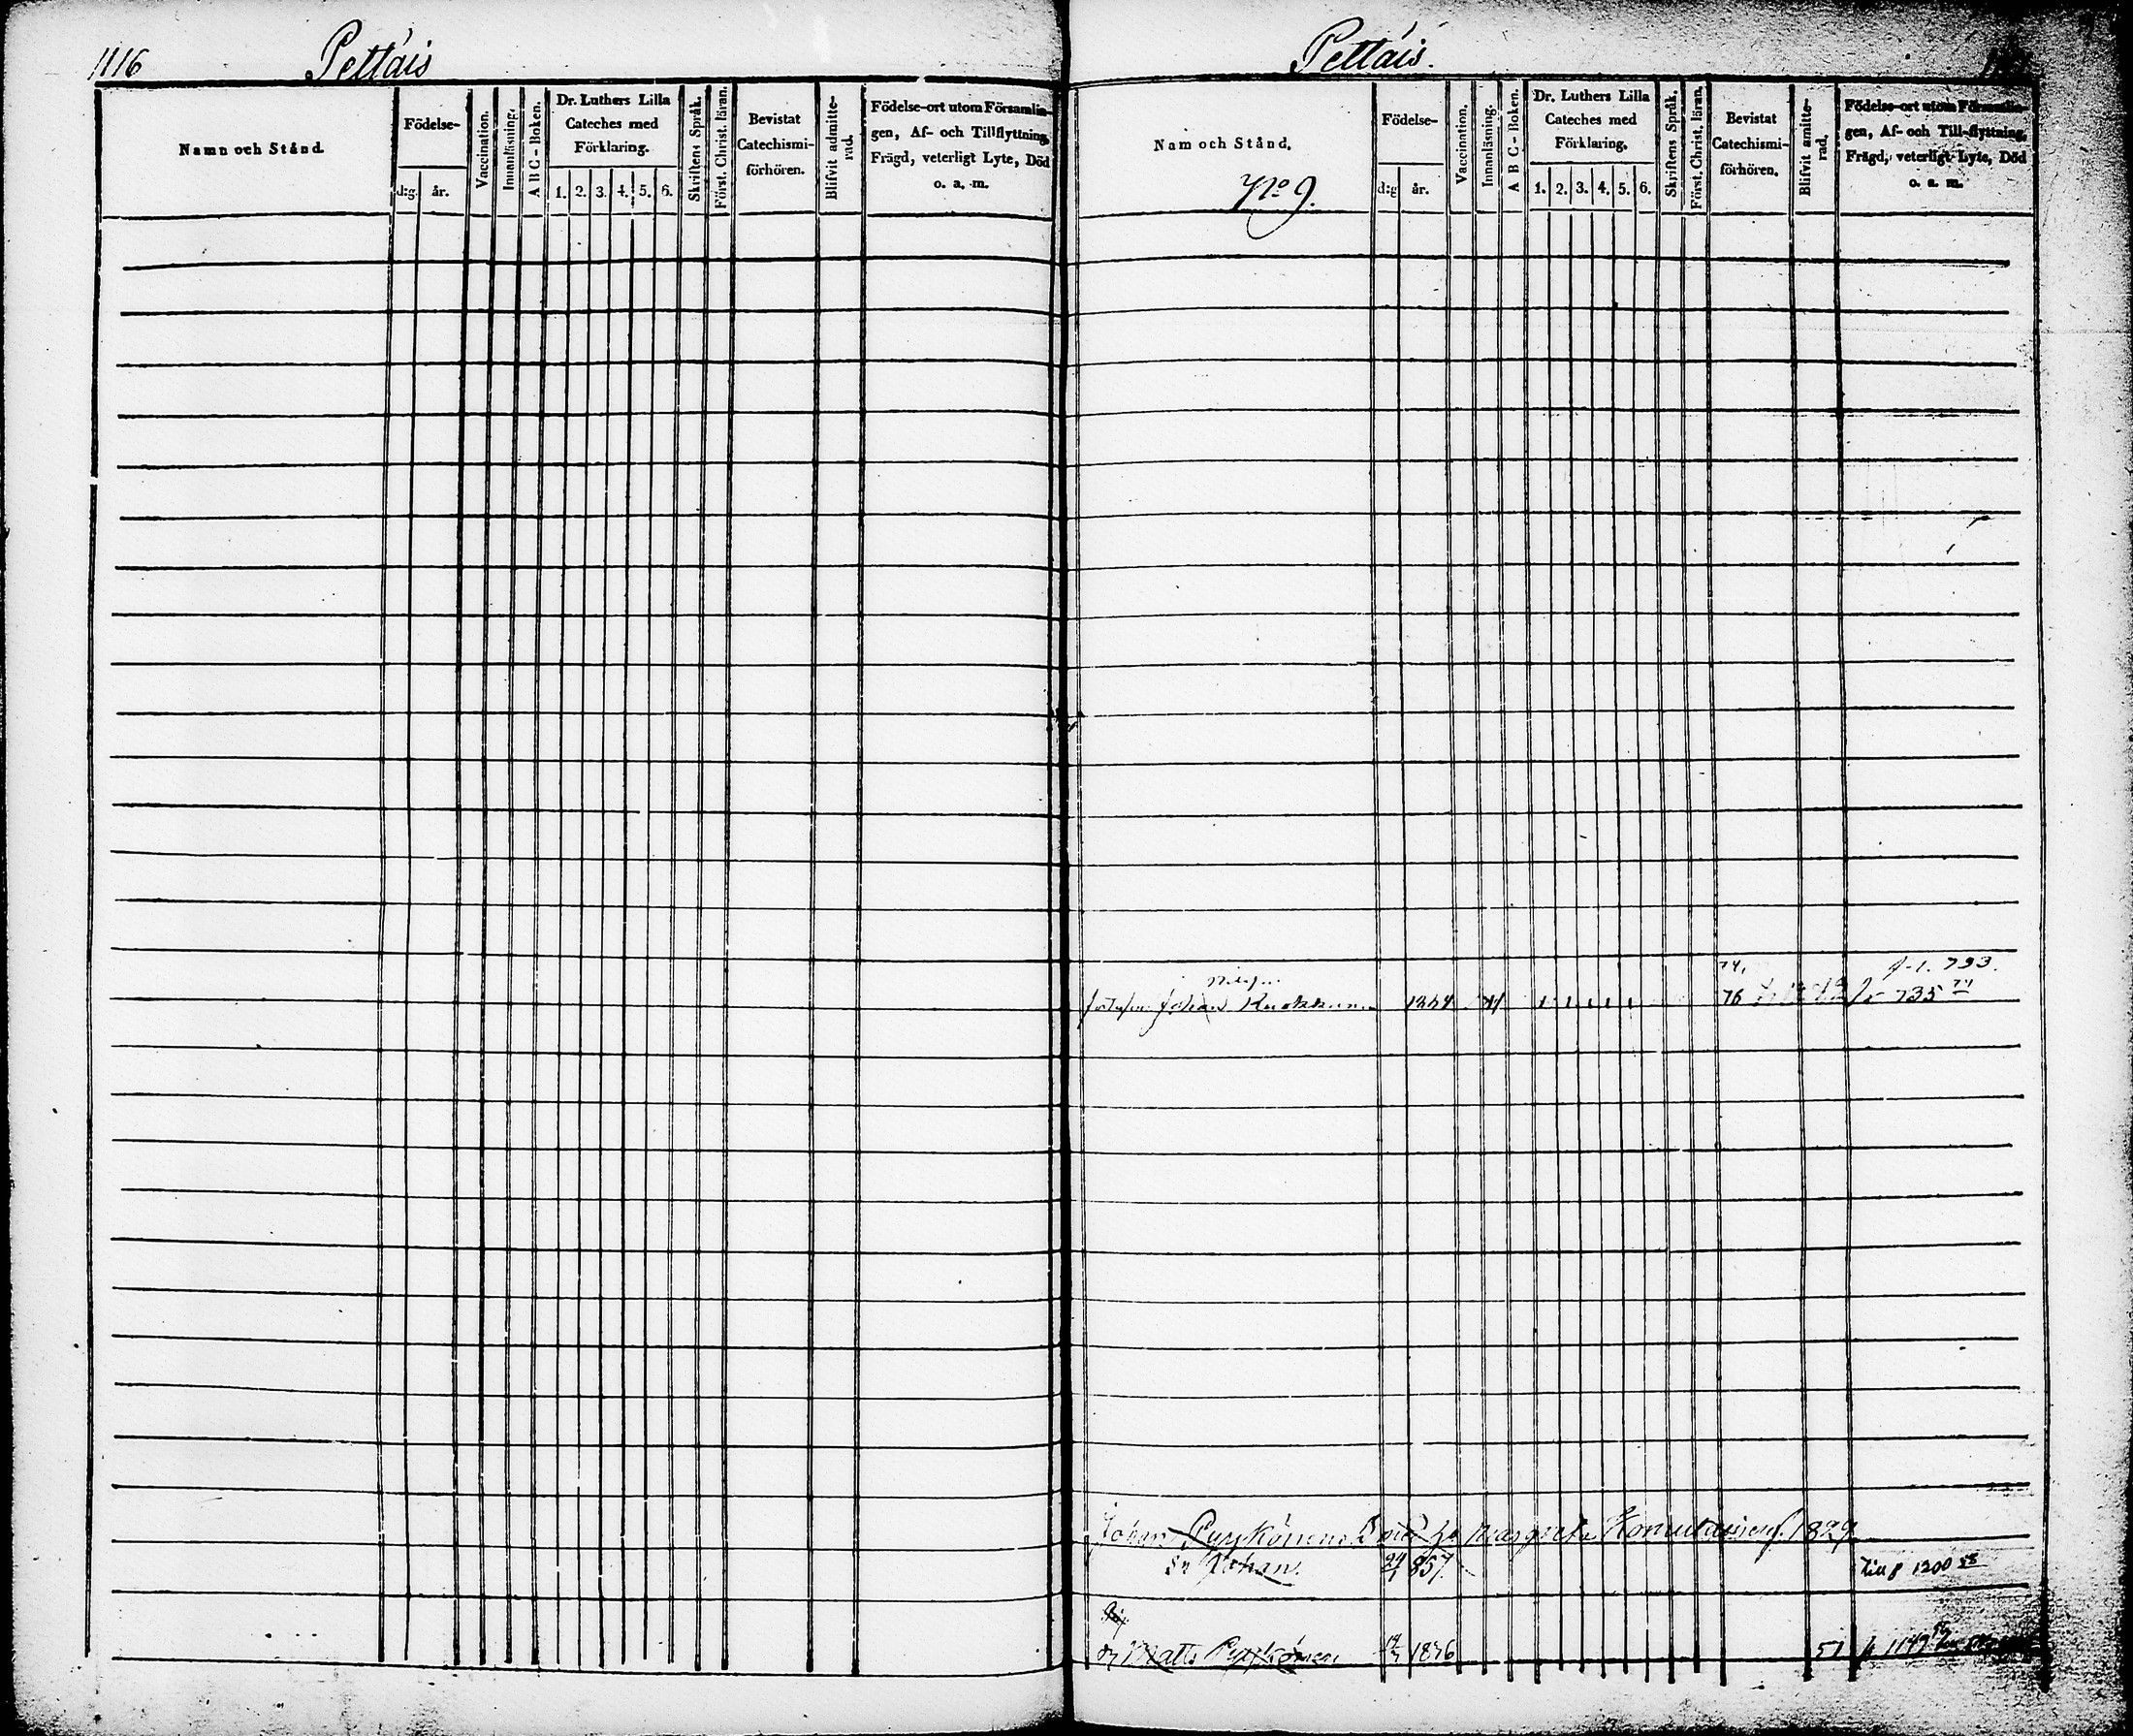 1116 Pettäis
Namn och Stånd
Födelse-
d:g. år.
Vaccination.
Innanläsning.
A B C - Boken.
Dr. Luthers Lilla
Cateches med
Förklaring.
1. 2. 3. 4. 5. 6.
Skriftens Språk.
Först. Christ. läran.
Bevistat
Catechismi-
förhören.
Blifvit admitte-
rad.
Födelse-ort utom Församlin-
gen, Af- och Tillflyttning,
Frägd, veterligt Lyte, Död
o. a. m.
Pettäis.
Namn och Stånd.
No 9.
Födelse-
d:g år.
Vaccination.
Innanläsning.
A B C - Boken.
Dr. Luthers Lilla
Cateches med
Förklaring.
1. 2. 3. 4. 5. 6.
Skriftens Språk.
Först. Christ. läran.
Bevistat
Catechismi-
förhören.
Blifvit amitte-
rad.
Födelse-ort utom Församlin-
gen, Af- och Till-flyttning,
Frägd, veterligt Lyte, Död
o. a. m.
74. 793.
Johan 76 735 74
Johan Pyykönens Margreta 1829
Sn Johan. 24/1 857. Till p 1200 58
Matts Pyykönen 1836 51 p 1149